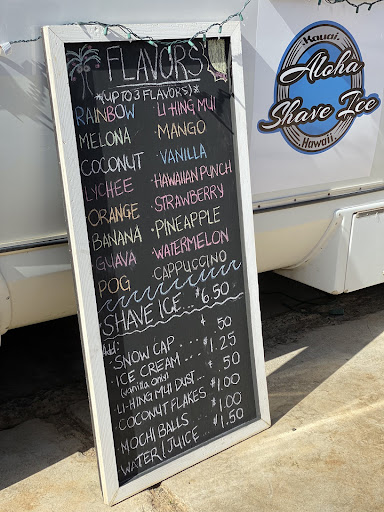 FLAVORS
*(UP TO 3 FLAVORS)*
RAINBOW · LI-HING MUI
MELONA · MANGO
COCONUT · VANILLA
LYCHEE · HAWAIIAN PUNCH
ORANGE · STRAWBERRY
BANANA · PINEAPPLE
GUAVA · WATERMELON
POG CAPPUCCINO
SHAVE ICE $6.50
Add:
· SNOW CAP ... $.50
· ICE CREAM ... $1.25
(vanilla only)
· LI-HING MUI DUST ... $.50
· COCONUT FLAKES $1.00
· MOCHI BALLS $1.00
WATER/JUICE $1.50
·Kauai·
Aloha
Shave Ice
Hawaii